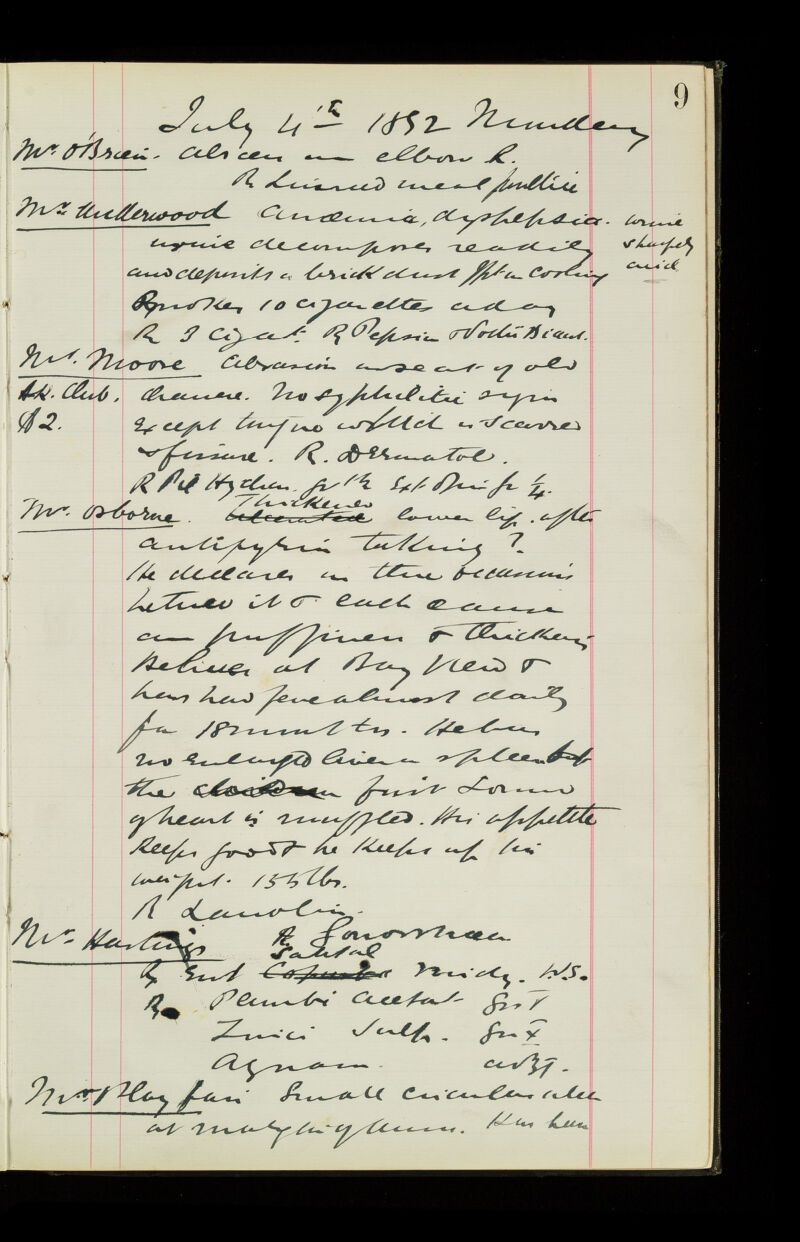 9
July 4th 1892 Munday
Mr. O'Brien. Abscess on elbow R.
R Linseed meal poultice
Mr. Underwood Anaemia, dyspepsia. urine
urine decomposes readily sharply
and deposits a brick dust ppt on cooling acid
Smokes 10 cigarettes a day
R 3 cigat. R Pepsin
Mr. Moore Abrasion on seat of old
Club. chancre. No syphilitic sign
$2. Except tongue which is scarred
& fissured. R. Dermatol.
R Pil Hydrarg. gr Ext Opii gr ¼.
Mr. Osborne. Thickened
lower lip. after
antipyrin taking?
He declares on three occasions
between it & each came
on puffiness & thickening
He lives at Bay View &
has had fever almost daily
for 18 months. He has
no enlarged liver or spleen but
the first sound
of heart is muffled. His appetite
keeps good & he keeps up his
weight. 155 lbs.
R Lanolin.
Mr. Hastings R Gonorrhoea
Santal
R Midy.
R Plumbi Acetat grs V
Zinci Sulph. grs X
Aquam. ad
Mr. Playfair Small circular ulcer
at margin of anus. Has been